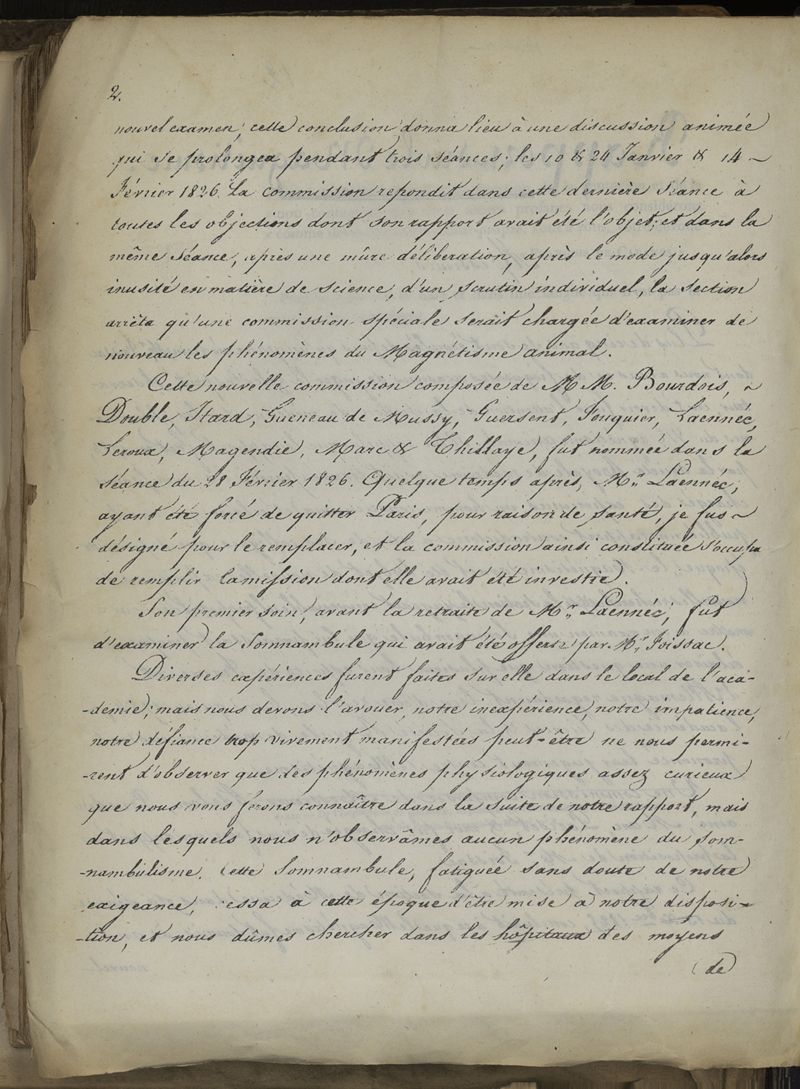 2.
nouvel examen; cette conclusion donna lieu à une discussion animée
qui se prolongea pendant trois séances; les 10 & 24 Janvier & 14 ~
Février 1826. La commission repondit dans cette dernière séance à
toutes les objections dont son rapport avait été l'objet; et dans la
même séance, après une mûre déliberation, après le mode jusqu'alors
inusité en matière de science, d'un scrutin individuel, la section
arrêta qu'une commission spéciale serait chargée d'examiner de
nouveau les phénomènes du Magnétisme animal.
Cette nouvelle commission composée de M M. Bourdois, ~
Double, Itard, Gueneau de Mussy, Guersent, Fouquier, Laennéc,
Leroux, Magendie, Marc & Thillaye, fut nommée dans la
séance du 28 Février 1826. Quelque temps après, Mr. Laennéc,
ayant été forcé de quitter Paris, pour raison de santé, je fus ~
désigné pour le remplacer, et la commission ainsi constituée s'occupa
de remplir la mission dont elle avait été investie.
Son premier soin, avant la retraite de Mr. Laennéc, fut
d'examiner la Somnambule qui avait été offerte par Mr. Foissac.
Diverses expériences furent faites sur elle dans le local de l'aca-
-demie; mais nous devons l'avouer, notre inexpérience, notre impatience,
notre défiance trop vivement manifestées peut-être ne nous permi-
-rent d'observer que des phénomènes physiologiques assez curieux
que nous vous ferons connaître dans la suite de notre rapport, mais
dans lesquels nous n'observâmes aucun phénomène du som-
-nambulisme. Cette Somnambule, fatiguée sans doute de notre
exigeance, cessa à cette époque d'être mise à notre disposi-
-tion, et nous dûmes chercher dans les hôpitaux des moyens
de